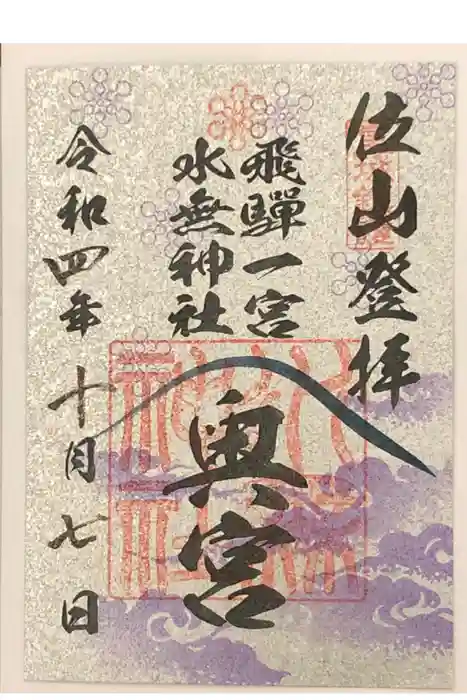 位山登拝
飛驒一宮
水無神社
奥宮
令和四年十月七日